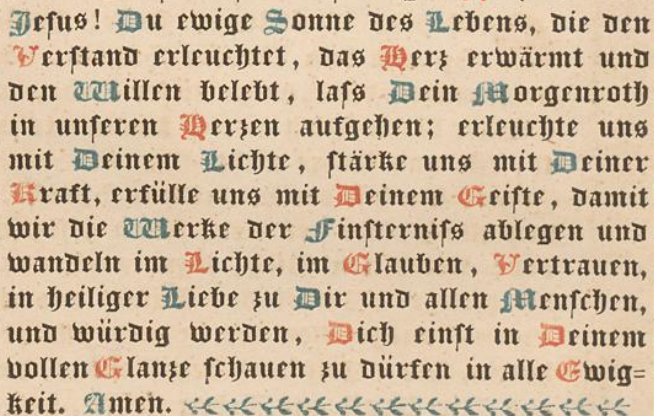 Jesus! Du ewige Sonne des Lebens, die den
Verstand erleuchtet, das Herz erwärmt und
den Willen belebt, lass Dein Morgenroth
in unseren Herzen aufgehen; erleuchte uns
mit Deinem Lichte, stärke uns mit Deiner
Kraft, erfülle uns mit Deinem Geiste, damit
wir die Werke der Finsterniss ablegen und
wandeln im Lichte, im Glauben, Vertrauen,
in heiliger Liebe zu Dir und allen Menschen,
und würdig werden, Dich einst in Deinem
vollen Glanze schauen zu dürfen in alle Ewig=
keit. Amen.